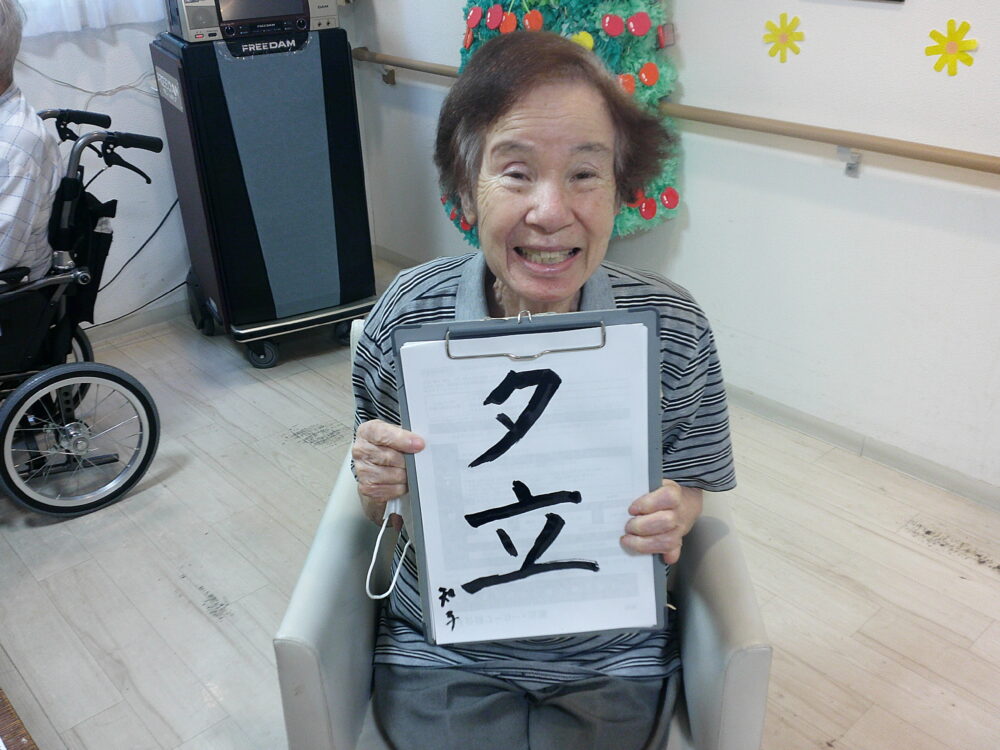 FREEDAM
DAM
夕立
和子